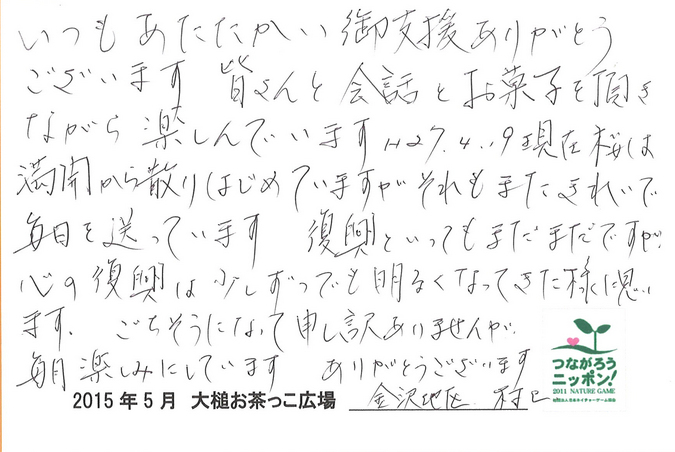 いつもあたたかい御支援ありがとう
ございます 皆さんと会話とお菓子を頂き
ながら楽しんでいます H27.4.19現在桜は
満開から散りはじめていますがそれもまたきれいで
毎日を送っています 復興といってもまだまだですが
心の復興は少しずつでも明るくなってきた様に思い
ます. ごちそうになって申し訳ありませんが
毎月楽しみにしています ありがとうございます
つながろう
ニッポン!
2011 NATURE GAME
2015年5月 大槌お茶っこ広場 金沢地区